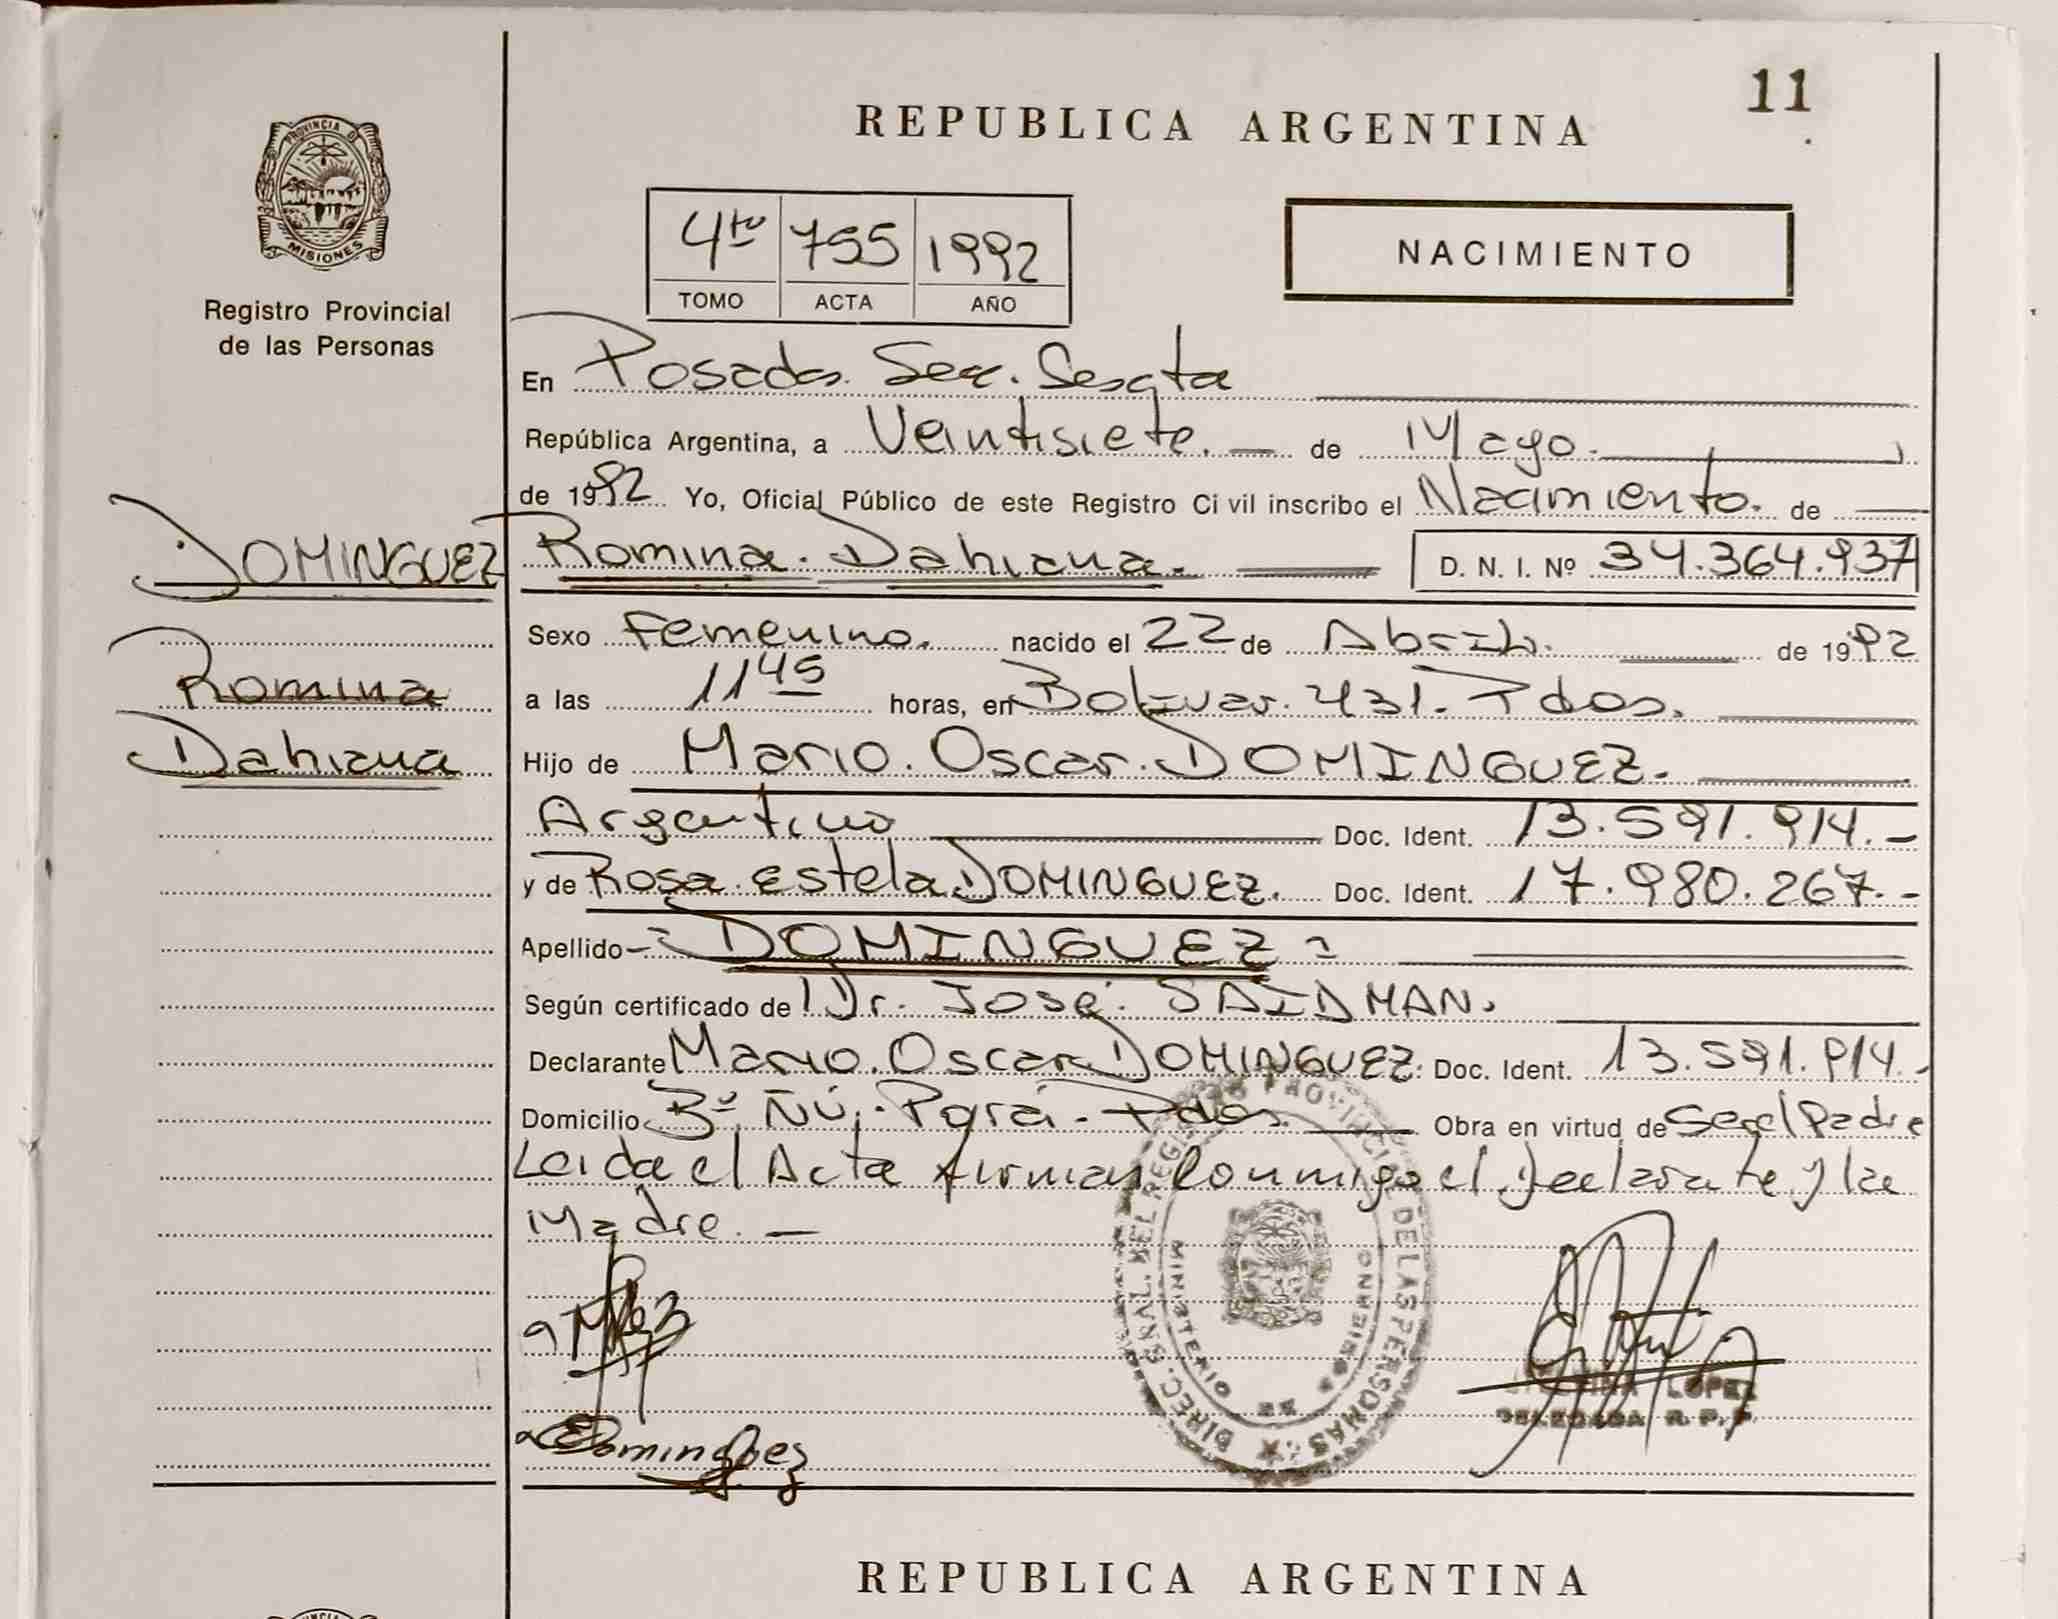 11
REPUBLICA ARGENTINA
PROVINCIA DE
MISIONES
Registro Provincial
de las Personas
4to 755 1992
TOMO ACTA AÑO
NACIMIENTO
En Posadas. Sec. Sesqta
República Argentina, a Veintisiete. — de Mayo.
de 1992 Yo, Oficial Público de este Registro Civil inscribo el Nacimiento. de
DOMINGUEZ
Romina
Dahiana
Romina. Dahiana. D. N. I. Nº 34.364.937
Sexo Femenino. nacido el 22 de Abril. de 1992
a las 11 45 horas, en Bolivar. 431. Pdas.
Hijo de Mario. Oscar. DOMINGUEZ.
Argentino Doc. Ident. 13.591.914.-
y de Rosa. Estela DOMINGUEZ. Doc. Ident. 17.980.267.-
Apellido DOMINGUEZ
Según certificado de Dr. José. SAIDMAN.
Declarante Mario. Oscar DOMINGUEZ. Doc. Ident. 13.591.914.-
Domicilio Bº Ñú. Porá. Pdas. Obra en virtud de Ser el Padre
Leida el Acta firman Conmigo el Declarante y la
Madre. —
DIREC. GRAL. DEL REGISTRO PROVINCIAL DE LAS PERSONAS
MINISTERIO DE GOBIERNO
LOPEZ
DELEGADA R. P. P.
Dominguez
REPUBLICA ARGENTINA